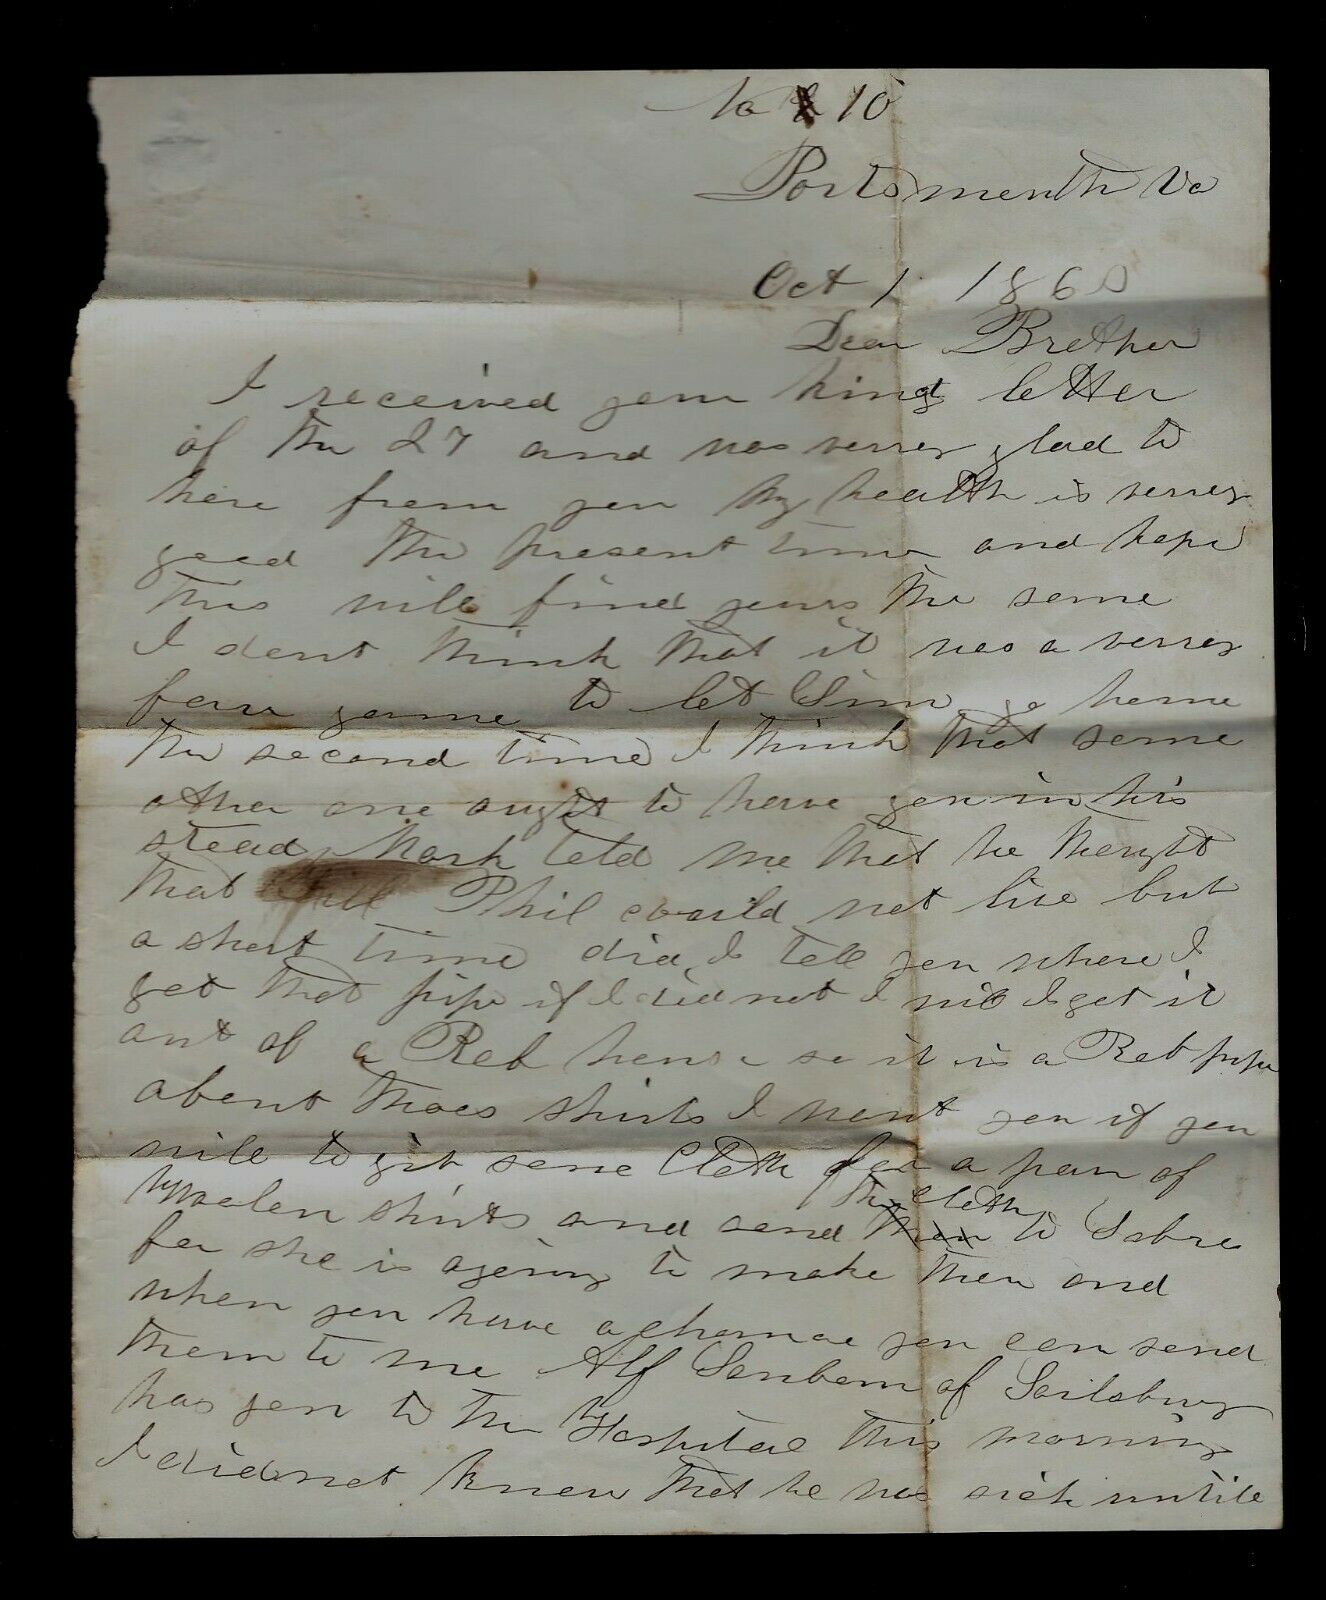 No 10
Portsmouth Va
Oct 1 1863
Dear Brother
I received your kind letter
of the 27 and was verrey glad to
here from you My health is verrey
good the present time and hope
this will find yours the same
I dont think that it was a verrey
fair game to let Sim go home
the second time I think that some
other one aught to have gon in his
stead Mark told me that he thought
that Phil could not live but
a short time did I tell you where I
got that pipe if I did not I will I got it
out of a Reb house so it is a Reb pipe
about thoes shirts I want you if you
will to git some Cloth for a pair of
Woolen shirts and send the Cloth to
for she is agoing to make them and
when you have a chance you can send
them to me Alf Sanborn of Sailsbury
has gon to the Hospital this morning
I did not know that he was sick untile